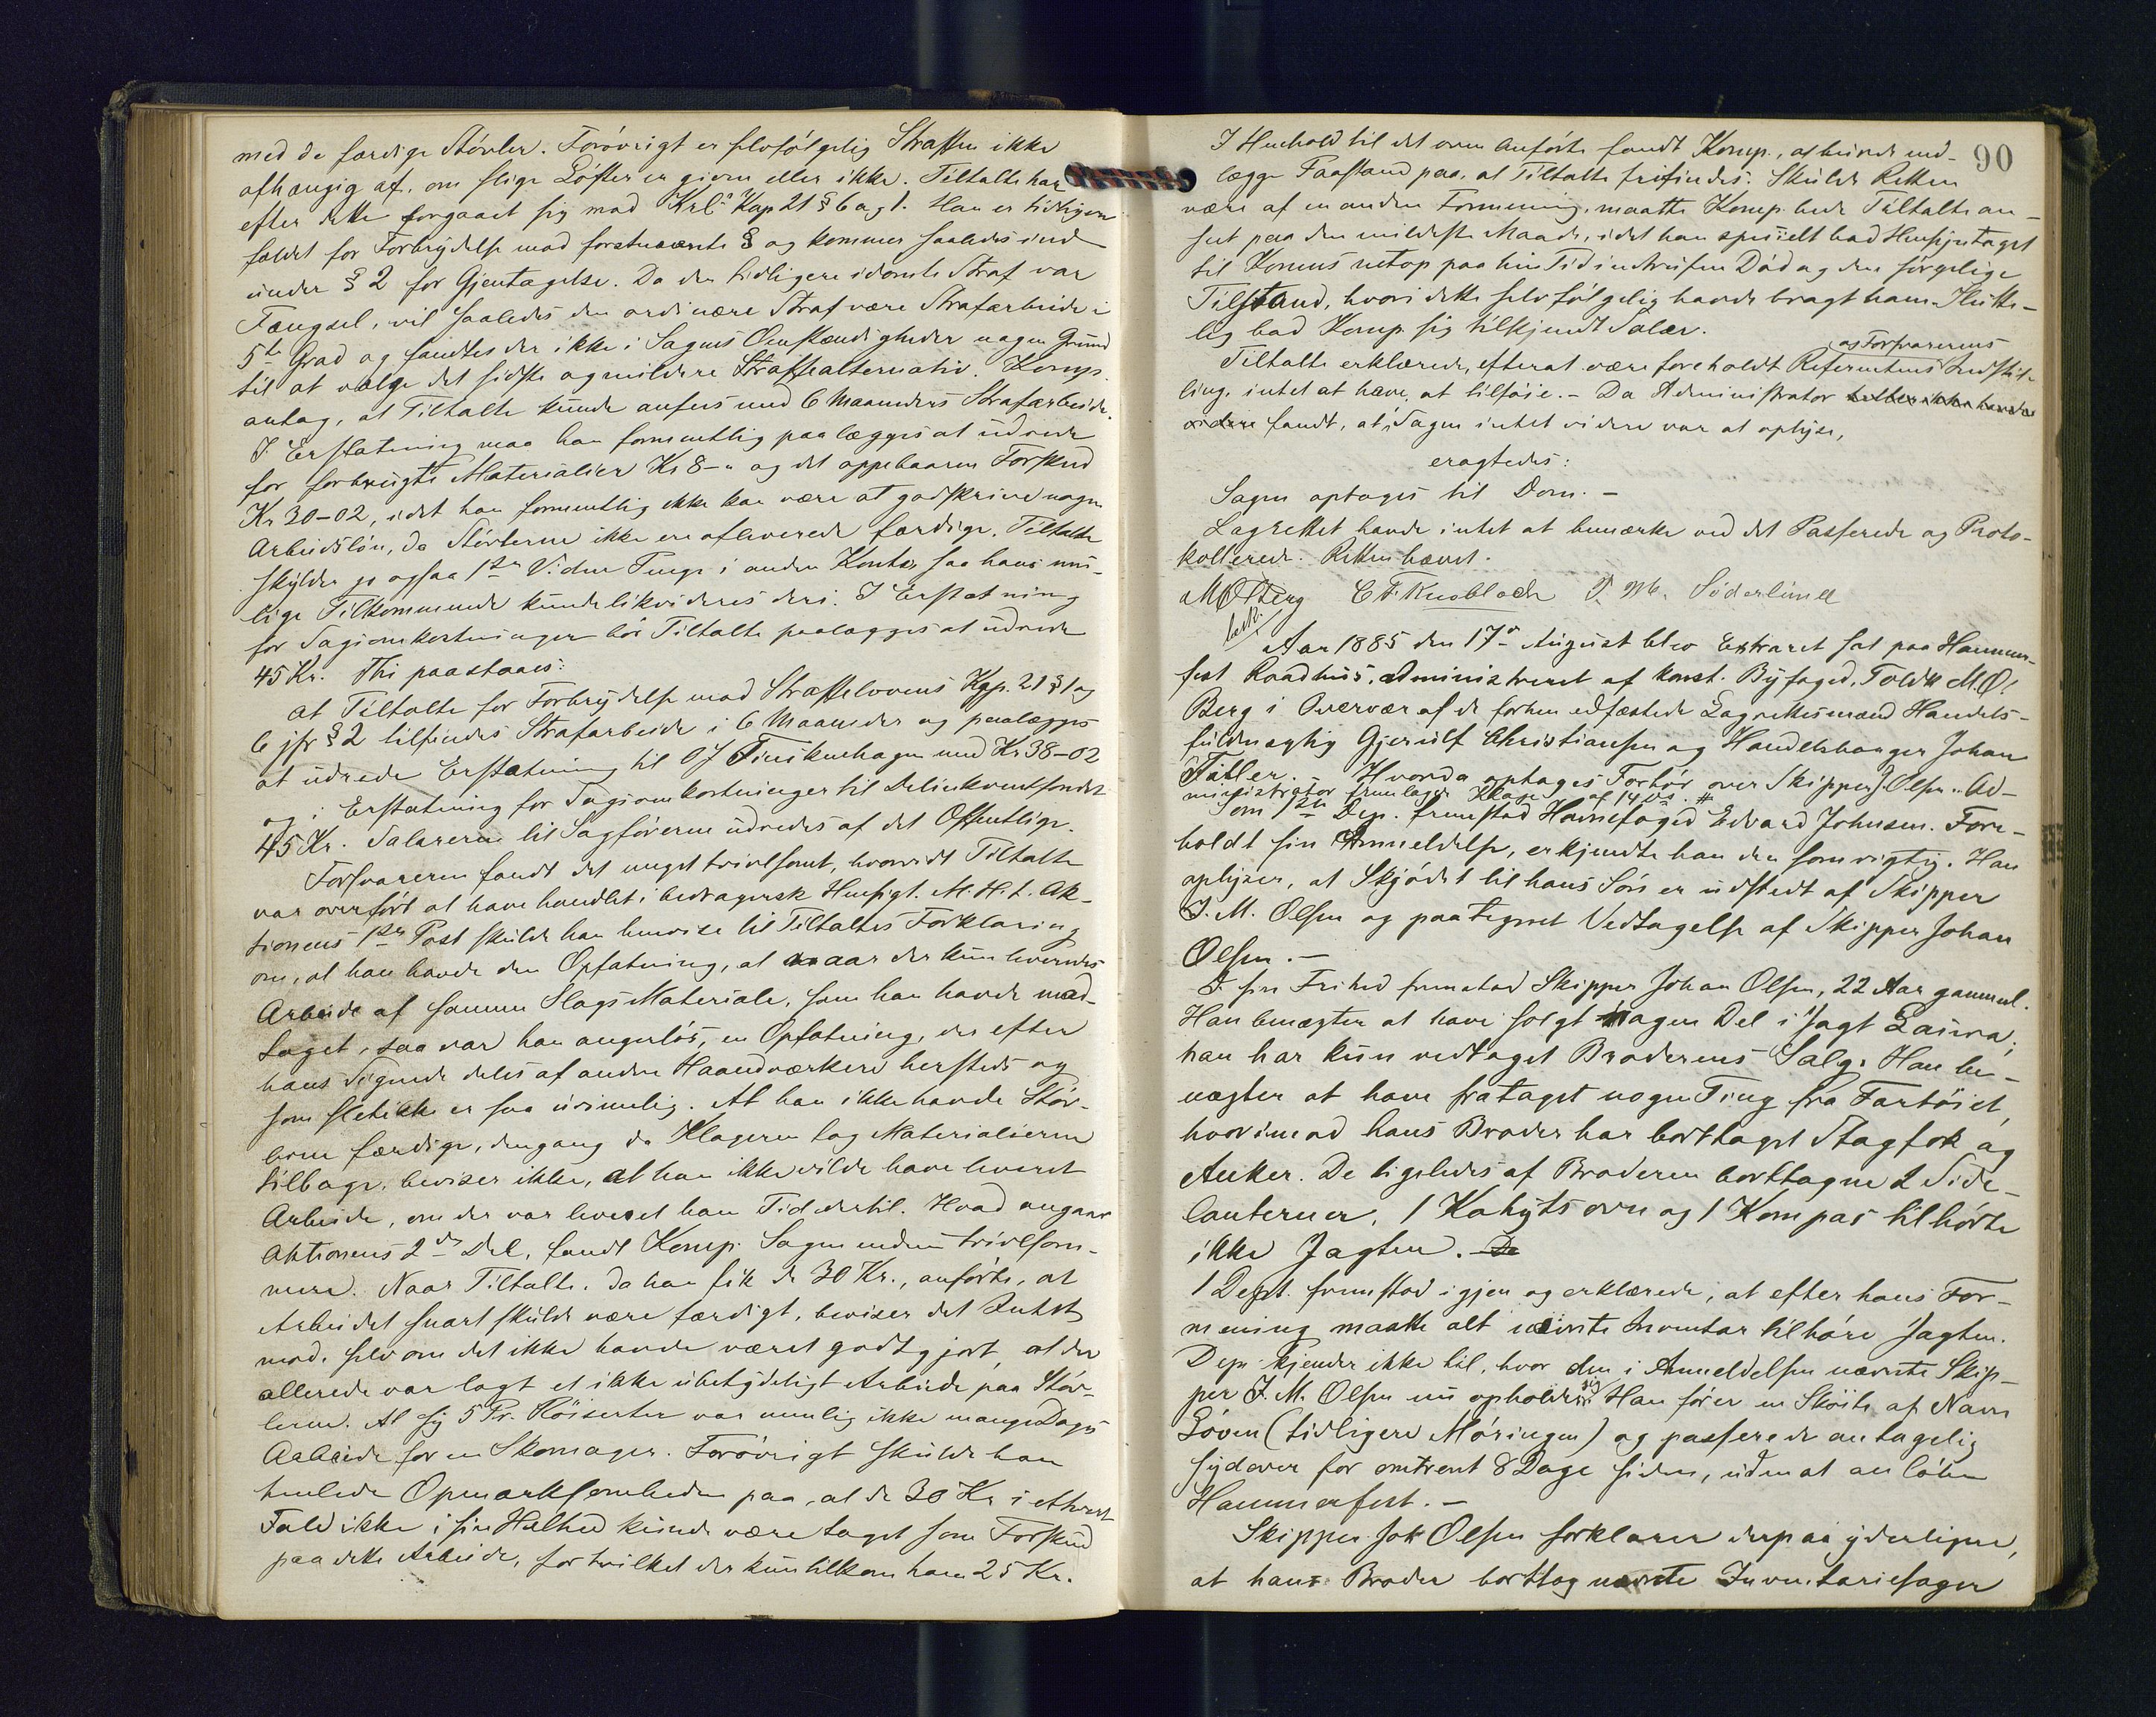 med de færdige Støvler. Forøvrigt er selvfølgelig Straffen ikke
afhængig af, om slige Løfter er given eller ikke. Tiltalte har
efter dette forgaaet sig mod Krl.s Kap 21 § 6 og 1. Han er tidligere
fældet for Forbrydelse mod forstnævnte § og kommer saaledes ind
under § 2 for Gjentagelse. Da den tidligere idømte Straf var
Fængsel, vil saaledes den ordinære Straf være Strafarbeide i
5te Grad og fandtes der ikke i Sagens Omstændigheder nogen Grund
til at vælge det sidste og mildere Straffealternativ. Komp.
antog, at Tiltalte kunde ansees med 6 Maaneders Strafarbeide.
I Erstatning maa han formentlig paalægges at udrede
for forbrugte Materialier Kr 8-" og det oppebaarne Forskud
Kr 30-02, idet han formentlig ikke kan være at godskrive nogen
Arbeidsløn, da Støvlerne ikke ere afleverede færdige. Tiltalte
skylder jo ogsaa 1ste Vidne Penge i anden Konto, saa hans mu-
lige Tilkommende kunde likvideres deri. I Erstatning
for Sagsomkostninger bør Tiltalte paalægges at udrede
45 Kr. Thi paastaaes:
at Tiltalte for Forbrydelse mod Straffelovens Kap. 21 § 1 og
6 jfr § 2 tilfindes Strafarbeide i 6 Maaneder og paalægges
at udrede Erstatning til O J Finckenhagen med Kr 38-02
og i Erstatning for Sagsomkostninger til Delinkventfondet
45 Kr. Salærerne til Sagførerne udredes af det Offentlige.
Forsvareren fandt det meget tvivlsomt, hvorvidt Tiltalte
var overført at have handlet i bedragersk Hensigt. M. H. t. Ak-
tionens 1ste Post skulde han henvise til Tiltaltes Forklaring
om, at han havde den Opfatning, at naar der kun leveredes
Arbeide af samme Slags Materiale, som han havde mod-
taget, saa var han angerløs, en Opfatning, der efter
hans Sigende deles af andre Haandværkere hersteds og
som slet ikke er saa urimelig. At han ikke havde Støv-
lerne færdige, dengang da Klageren tog Materialierne
tilbage, beviser ikke, at han ikke vilde have leveret
Arbeide, om der var levnet ham Tid dertil. Hvad angaar
Aktionens 2den Del, fandt Komp. Sagen endnu tvivlsom-
mere. Naar Tiltalte, da han fik de 30 Kr., anførte, at
Arbeidet snart skulde være færdigt, beviser det Intet
mod, selv om det ikke havde været godtgjort, at der
allerede var lagt et ikke ubetydeligt Arbeide paa Støv-
lerne. At sy 5 Pr. Høiserter var nemlig ikke mange Dages
Arbeide for en Skomager. Forøvrigt skulde han
henlede Opmærksomheden paa, at de 30 Kr i ethvert
Fald ikke i sin Helhed kunde være taget som Forskud
paa dette Arbeide, for hvilket der kun tilkom ham 25 Kr.
90
I Henhold til det oven Anførte fandt Komp., at burde ned-
lægge Paastand paa, at Tiltalte frifindes. Skulde Retten
være af en anden Formening, maatte Komp. bede Tiltalte an-
seet paa den mildeste Maade, idet han specielt bad Hensyn taget
til Konens netop paa hin Tid indtrufne Død og den sørgelige
Tilstand, hvori dette selvfølgelig havde bragt ham. Slutte-
lig bad Komp. sig tilkjendt Salær.
og Forsvarerens
Tiltalte erklærede, efterat være foreholdt Referentens Indstil-
ling, intet at have at tilføie. - Da Administrator
videre fandt, at i Sagen intet videre var at oplyse,
eragtedes:
Sagen optages til Dom. -
Lagrettet havde intet at bemærke ved det Passerede og Proto-
kollerede. Retten hævet.
M Ø Berg C F. Knoblock P. M. Söderlund
Aar 1885 den 17de August blev Extraret sat paa Hammer-
fest Raadhus, administreret af konst. Byfoged, Toldk M. Ø.
Berg i Overvær af de forhen edfæstede Lagrettesmænd Handels-
fuldmægtig Gjerulf Christiansen og Handelsborger Johan
Fatler. - Hvorda optages Forhør over Skipper J. Olsen. Ad-
ministrator fremlagde Klage af 14 ds. #
Som 1ste Dep. fremstod Havnefoged Edvard Johnsen. Fore-
holdt sin Anmeldelse, erkjendte han den som rigtig. Han
oplyser, at Skjødet til hans Søn er udstedt af Skipper
J. M. Olsen og paategnet Vedtagelse af Skipper Johan
Olsen. -
I sin Frihed fremstod Skipper Johan Olsen, 22 Aar gammel.
Han benægter at have solgt nogen Del i Jagt Laura;
han har kun vedtaget Broderens Salg. Han be-
nægter at have frataget nogen Ting fra Fartøiet,
hvorimod hans Broder har borttaget Stagfok og
Anker. De ligeledes af Broderen borttagne 2 Side-
lanterner, 1 Kahytsovn og 1 Kompas tilhørte
ikke Jagten. De
1 Dept. fremstod igjen og erklærede, at efter hans For-
mening maatte alt nævnte Inventar tilhøre Jagten.
Dep. kjender ikke til, hvor den i Anmeldelsen nævnte Skip-
per J. M. Olsen nu opholder sig. Han fører en Skøite af Navn
Løven (tidligere Møringen) og passerede antagelig
sydover for omtrent 8 Dage siden, uden at anløbe
Hammerfest. -
Skipper Joh Olsen forklarer derpaa yderligere,
at hans Broder borttog nævnte Inventariesager